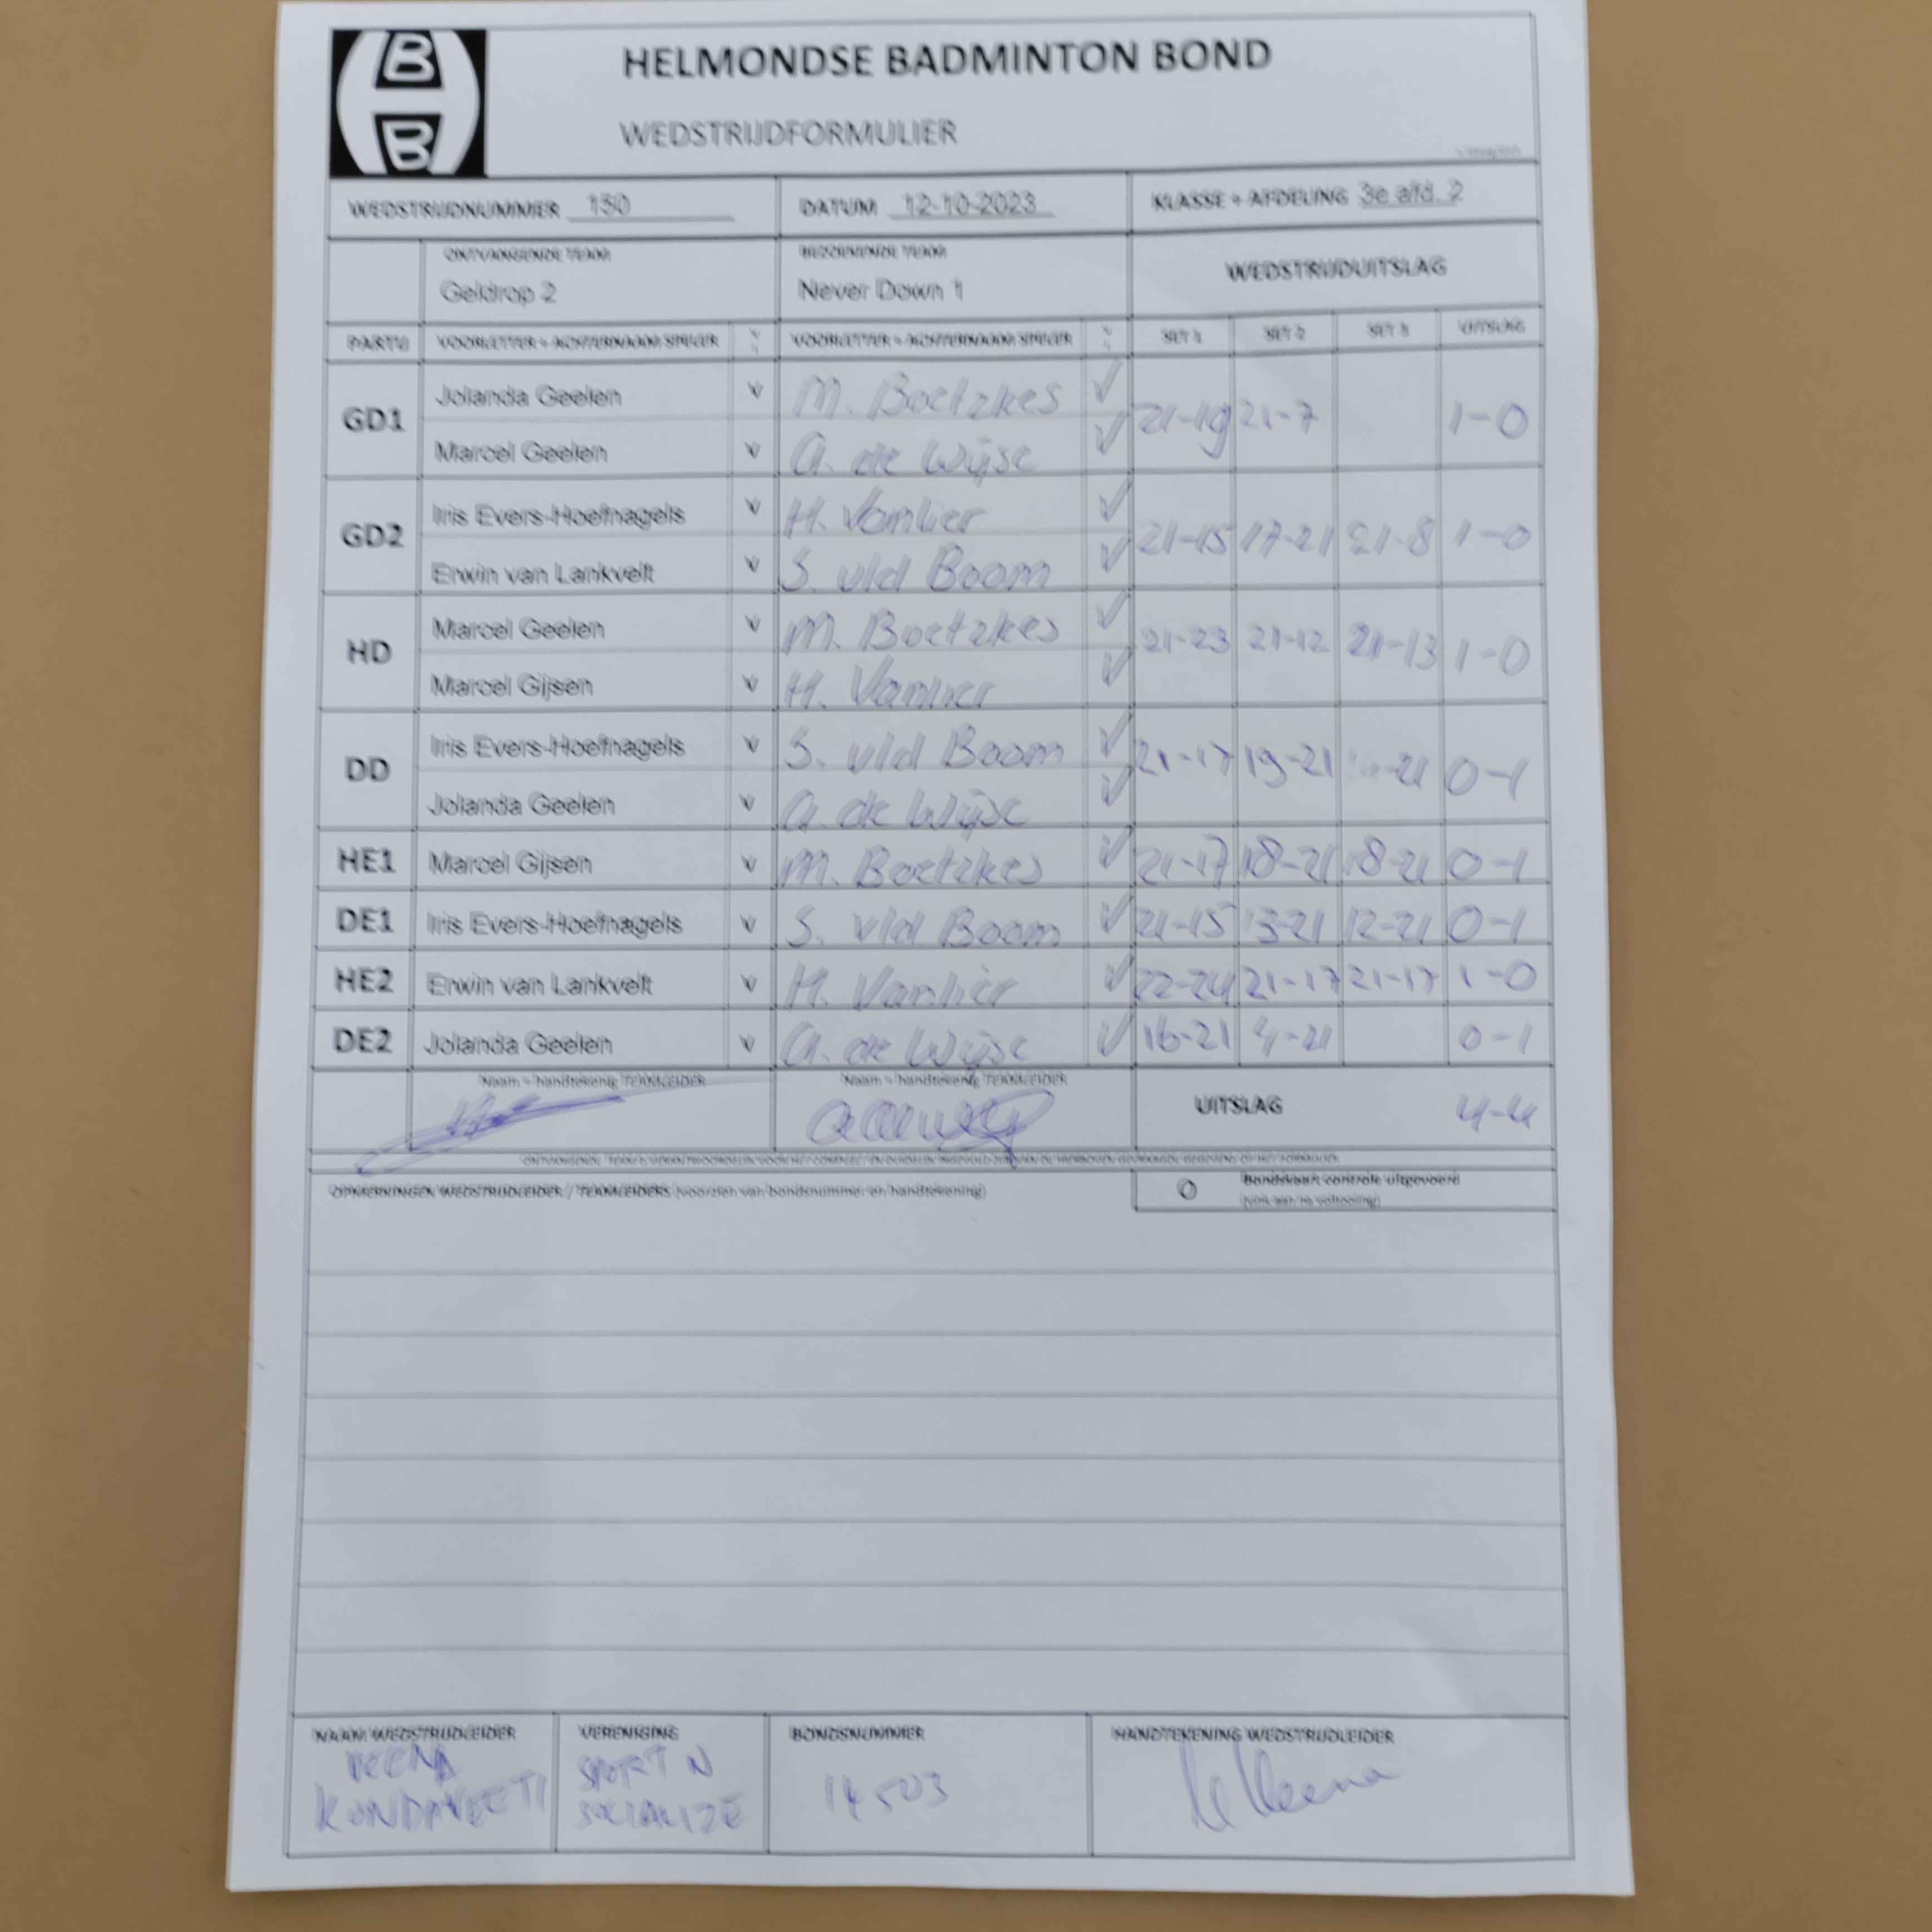 B
B
HELMONDSE BADMINTON BOND
WEDSTRIJDFORMULIER
WEDSTRIJDNUMMER 130 DATUM 12-10-2023 KLASSE + AFDELING 3e afd. 2
ONTVANGENDE TEAM BEZOEKENDE TEAM WEDSTRIJDUITSLAG
Geldrop 2 Never Down 1
PARTIJ VOORLETTER + ACHTERNAAM SPELER VOORLETTER + ACHTERNAAM SPELER SET 1 SET 2 SET 3 UITSLAG
GD1 Jolanda Geelen v M. Boetzkes ✓ 21-19 21-7 1-0
Marcel Geelen v A. de Wijse ✓
GD2 Iris Evers-Hoefnagels v H. Vanlier ✓ 21-15 17-21 21-8 1-0
Erwin van Lankvelt v S. v/d Boom ✓
HD Marcel Geelen v M. Boetzkes ✓ 21-23 21-12 21-13 1-0
Marcel Gijsen v H. Vanlier ✓
DD Iris Evers-Hoefnagels v S. v/d Boom ✓ 21-17 19-21 -21 0-1
Jolanda Geelen v A. de Wijse ✓
HE1 Marcel Gijsen v M. Boetzkes ✓ 21-17 18-21 18-21 0-1
DE1 Iris Evers-Hoefnagels v S. v/d Boom ✓ 21-15 13-21 12-21 0-1
HE2 Erwin van Lankvelt v H. Vanlier ✓ 22-24 21-17 21-17 1-0
DE2 Jolanda Geelen v A. de Wijse ✓ 16-21 4-21 0-1
Naam + handtekenig TEAMLEIDER Naam + handtekenig TEAMLEIDER
UITSLAG 4-4
OPMERKINGEN WEDSTRIJDLEIDER / TEAMLEIDERS (voorzien van bondsnummer en handtekening) O Bondskaart controle uitgevoerd
(vink aan na voltooiing)
NAAM WEDSTRIJDLEIDER VERENIGING BONDSNUMMER HANDTEKENING WEDSTRIJDLEIDER
VEENA SPORT N 14503
KONDAVEETI SOCIALIZE